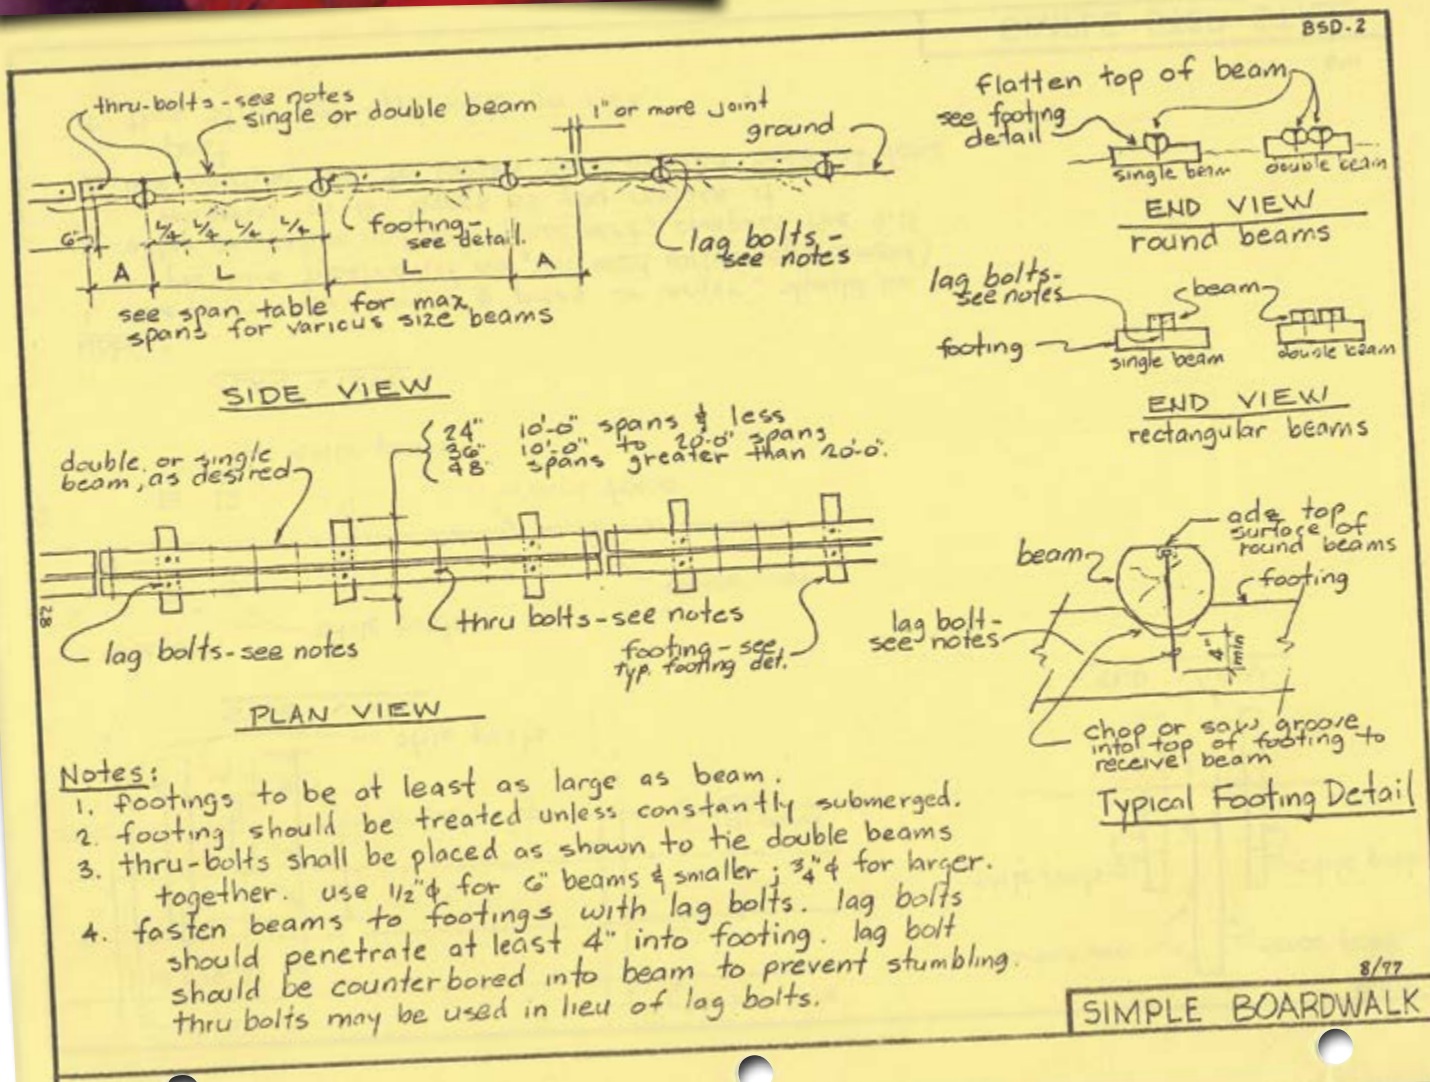 BSD-2
thru-bolts - see notes
single or double beam
1" or more joint
ground
6"
L/4 L/4 L/4 L/4
footing-
see detail.
lag bolts,-
see notes
A L L A
see span table for max
spans for various size beams
SIDE VIEW
flatten top of beam
see footing
detail
single beam
double beam
END VIEW
round beams
lag bolts-
see notes
beam
footing
single beam
double beam
END VIEW
rectangular beams
double or single
beam, as desired
24" 10'-0" spans & less
36" 10'-0" to 20'-0" spans
48" spans greater than 20'-0".
lag bolts-see notes
thru bolts-see notes
footing - see
typ. footing det.
28
PLAN VIEW
adz top
surface of
round beams
beam
footing
lag bolt-
see notes
4"
min
chop or saw groove
into top of footing to
receive beam
Typical Footing Detail
Notes:
1. footings to be at least as large as beam.
2. footing should be treated unless constantly submerged.
3. thru-bolts shall be placed as shown to tie double beams
together. use 1/2"ϕ for 6" beams & smaller; 3/4"ϕ for larger.
4. fasten beams to footings with lag bolts. lag bolts
should penetrate at least 4" into footing. lag bolt
should be counterbored into beam to prevent stumbling.
thru bolts may be used in lieu of lag bolts.
8/77
SIMPLE BOARDWALK